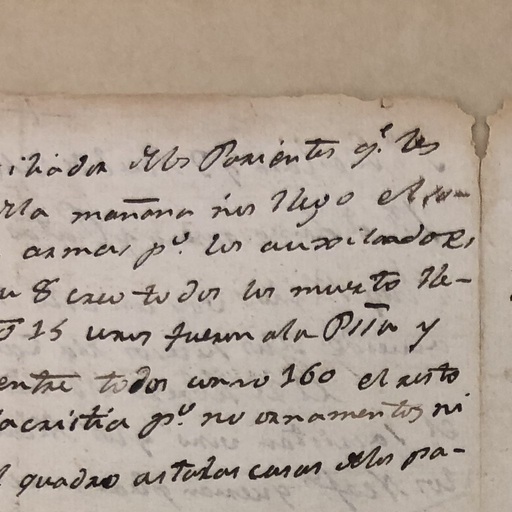 iliador de los Parientes q.e les
de la mañana nos llego el
armas p.a los auxiliadores
u 8 creo todos los muerto lle-
15 unos fueron a la Pnā y
entre todos como 160 el resto
acristia p.o no ornamentos ni
l quadro asta las casas de los pa-